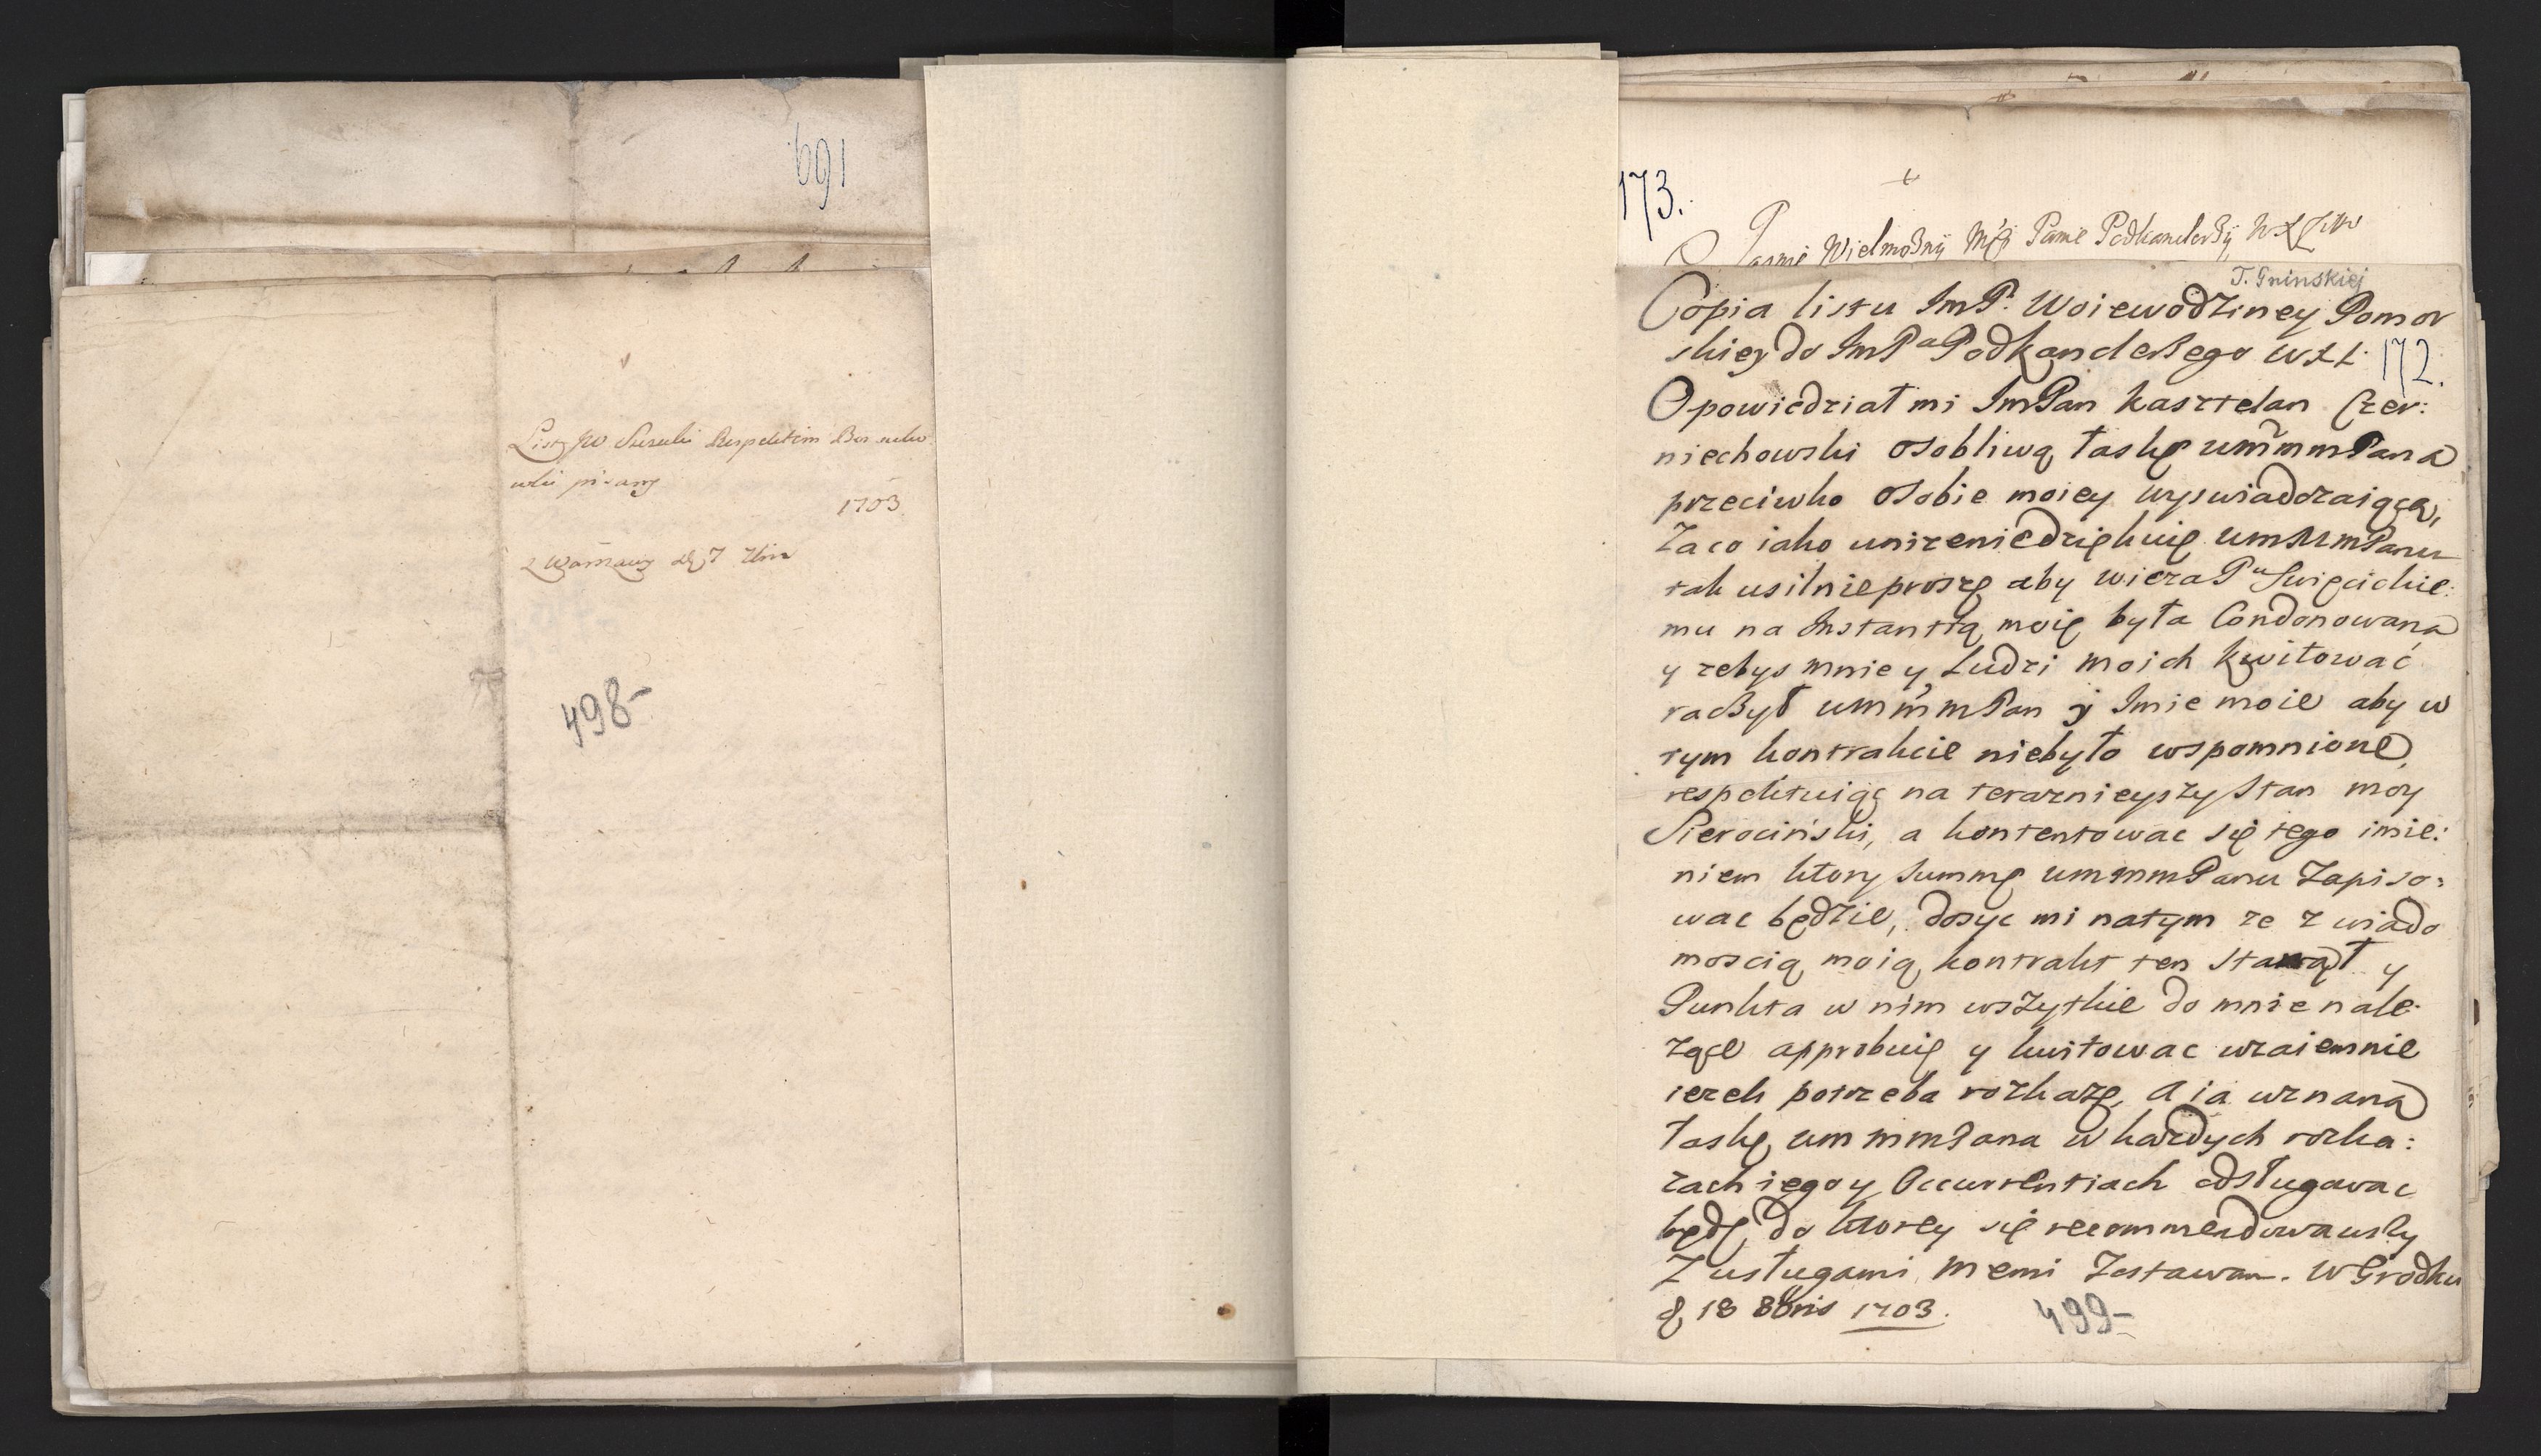 169
List JW Sieruki Respektem
wki pisany
1703
z Warszawy d 7
498-
173.
Jasnie Wielmożnÿ Mój Panie Podkanclerzÿ W X L
T. Gninskiej
Copia listu JmP. Woiewodziney Pomor
skiey do JmPa Podkanclerzego WXL.
172.
Opowiedział mi JmPan kasztelan Czer:
niechowski osobliwą łaskę ummmPana
przeciwko osobie moiey wyswiadczaiącą,
Za co iako unizenie dziękuię ummmPanu
tak usilnie proszę aby wieza Pu Swięcickie:
mu na Instantią moię była Condonowana
y zebys mnie y Ludzi moich kwitować
raczył ummmPan y Imie moie aby w
tym kontrakcie niebyło wspomnione
respektuiąc na teraznieyszy Stan moy
Sierociński, a kontentowac się tego imie:
niem ktory Summę ummmPanu Zapiso:
wac będzie, dosyc mi natym ze z wiado
moscią moią kontrakt ten stanął y
Punkta w nim wszytkie do mnie nale:
zące approbuię y kwitowac wzaiemnie
iezeli potrzeba rozkazę, a ia uznaną
łaskę ummmPana w kazdych rozka:
zach iego y Occurrentiach odsługowac
będę, do ktorey się recommendowawszy
Z usługami memi Zostawam. W Grodku
d 18 8bris 1703.
499-